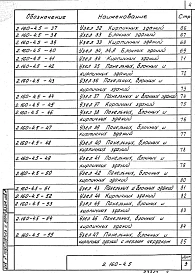 Обозначение Наименование Стр
2.160-4.5 - 37 Узел 32 Кирпичных зданий 67
2.160-4.5 - 38 Узел 33 Блочных зданий 68
2.160-4.5 - 39 Узел 33 Кирпичных зданий 69
2.160-4.5 - 40 Узел
2.160-4.5 - 41 Узел 34 Кирпичных зданий
2.160-4.5 - 42 Узел 35 Панельных, Блочных и
кирпичных зданий 72
2.160-4.5 - 43 Узел 36 Панельных, Блочных и
кирпичных зданий 73
2.160-4.5 - 44 Узел 37 Панельных и Блочных зданий
2.160-4.5 - 45 Узел 37 Кирпичных зданий
2.160-4.5 - 46 Узел 38 Панельных, Блочных и
кирпичных зданий 76
2.160-4.5 - 47 Узел 39 Панельных, Блочных и
кирпичных зданий 77
2.160-4.5 - 48 Узел 40 Панельных, Блочных и
кирпичных зданий 78
2.160-4.5 - 49 Узел 41 Панельных, Блочных и
кирпичных зданий 79
2.160-4.5 - 50 Узел 42 Панельных, Блочных и
кирпичных зданий 80
2.160-4.5 - 51 Узел 43 Панельных и Блочных зданий 81
2.160-4.5 - 52 Узел 43 Кирпичных зданий 82
2.160-4.5 - 53 Узел 44 Панельных, Блочных и
кирпичных зданий 83
2.160-4.5 - 54 Узел 45 Панельных, Блочных и
кирпичных зданий 84
2.160-4.5 - 55 Узел 46 Панельных, Блочных и
кирпичных зданий с теплым чердаком 85
2.160-4.5